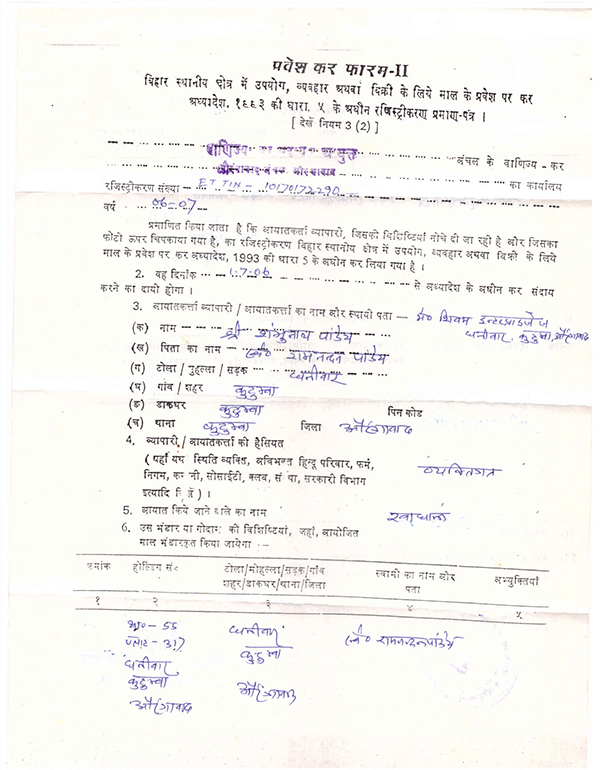 प्रवेश कर फारम-II
बिहार स्थानीय क्षेत्र में उपयोग, व्यवहार अथवा बिक्री के लिये माल के प्रवेश पर कर
अध्यादेश, १९९३ की धारा. ५ के अधीन रजिस्ट्रीकरण प्रमाण-पत्र ।
[ देखें नियम 3 (2) ]
अंचल के वाणिज्य - कर
का कार्यालय
रजिस्ट्रीकरण संख्या - ET TIN - 10170172290
वर्ष 06-07
प्रमाणित किया जाता है कि आयातकर्त्ता व्यापारी, जिसकी विशिष्टियां नीचे दी जा रही है और जिसका
फोटो ऊपर चिपकाया गया है, का रजिस्ट्रीकरण बिहार स्थानीय क्षेत्र में उपयोग, व्यवहार अथवा बिक्री के लिये
माल के प्रवेश पर कर अध्यादेश, 1993 की धारा 5 के अधीन कर लिया गया है ।
2. वह दिनांक 1.7.06 से अध्यादेश के अधीन कर संदाय
करने का दायी होगा ।
3. आयातकर्त्ता व्यापारी / आयातकर्त्ता का नाम और स्थायी पता - मे० शिवम इन्टरप्राईजेज
धनीबार, कुटुम्बा, औरंगाबाद
(क) नाम श्री शंभुनाथ पांडेय
(ख) पिता का नाम स्व० रामनन्दन पांडेय
(ग) टोला / मुहल्ला / सड़क धनीबार
(घ) गांव / शहर कुटुम्बा
(ङ) डाकघर कुटुम्बा पिन कोड
(च) थाना कुटुम्बा जिला औरंगाबाद
4. व्यापारी / आयातकर्त्ता की हैसियत
( यहाँ स्थिति व्यक्ति, अविभक्त हिन्दू परिवार, फर्म, व्यक्तिगत
निगम, सोसाईटी, क्लब, सरकारी विभाग
इत्यादि ) ।
5. आयात किये जाने वाले का नाम
6. उस भंडार या गोदाम की विशिष्टियां, जहां, आयोजित
माल भंडारकृत किया जायेगा :-
क्रमांक होल्डिंग सं० टोला/मोहल्ला/सड़क/गाँव स्वामी का नाम और अभ्युक्तियां
शहर/डाकघर/थाना/जिला पता
१ २ ३ ४ ५
खा०-55 धनीबार स्व० रामनन्दन पांडेय
प्लाट-317 कुटुम्बा
धनीबार
कुटुम्बा औरंगाबाद
औरंगाबाद